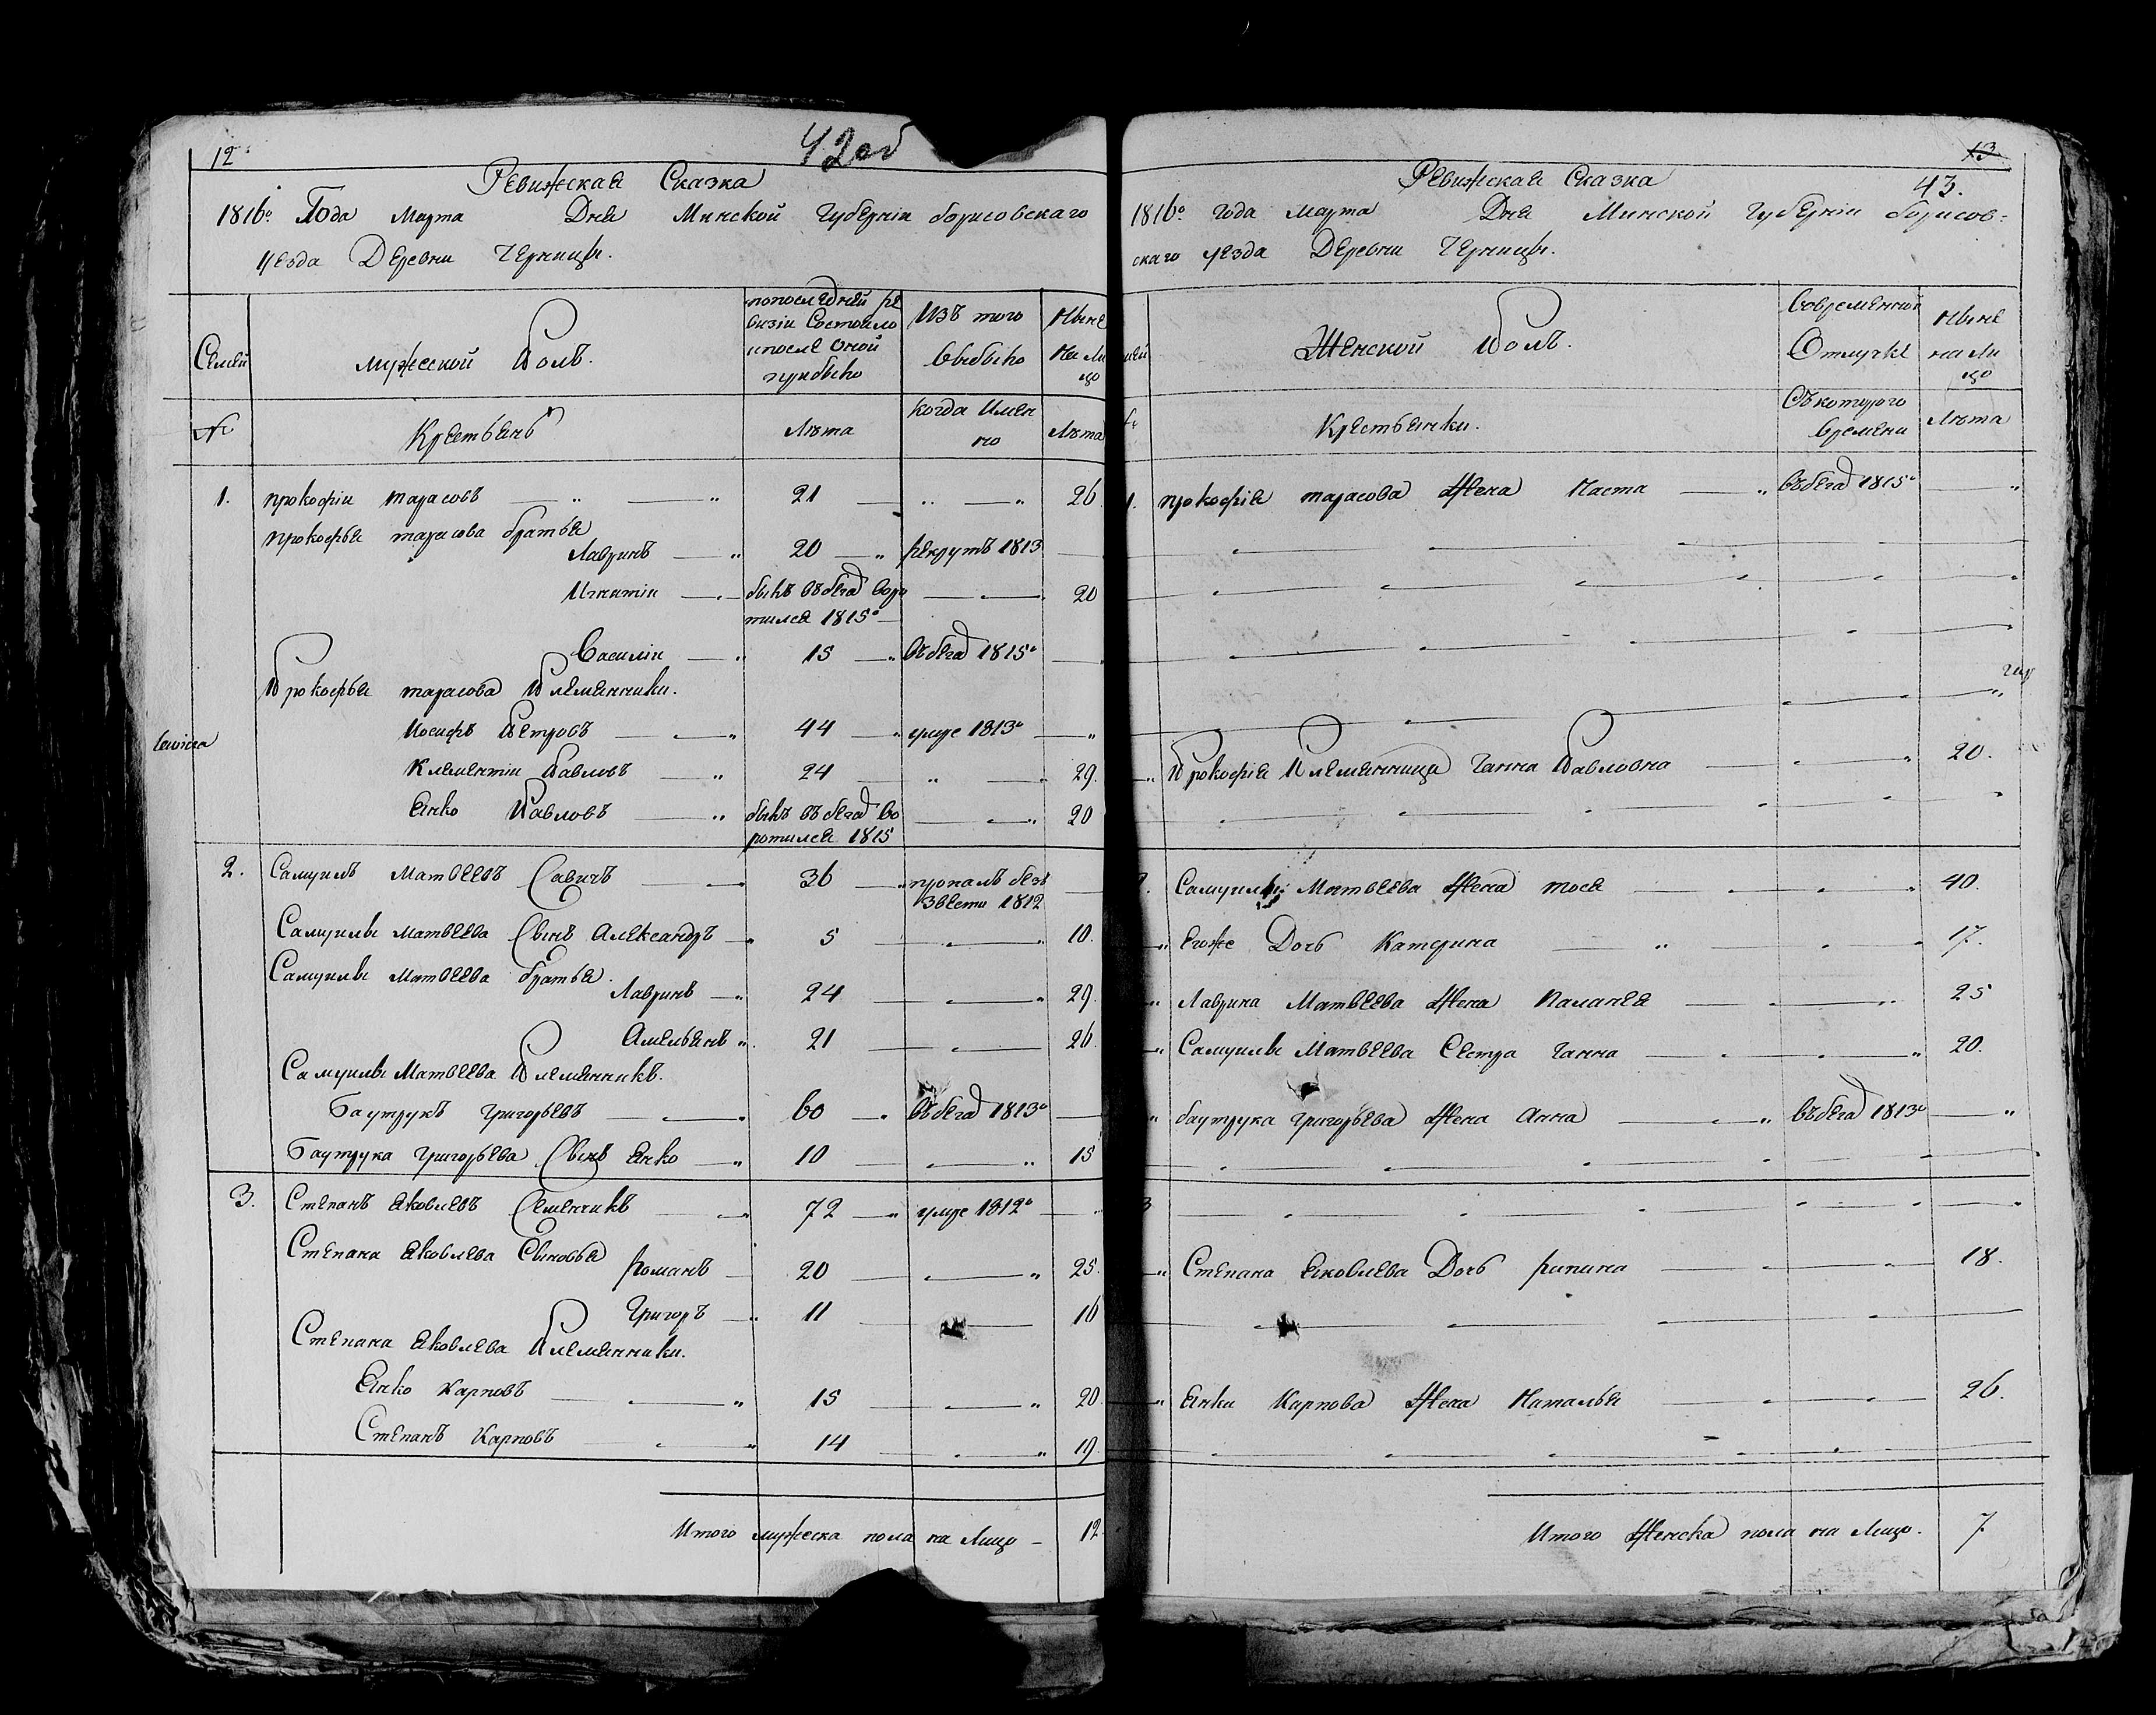 12
42об
Ревижская Сказка
1816го Года Марта Дня Минской Губернии борисовскаго
уезда Деревни Черницы.
Семей
мужеской Полъ.
попоследней ре
визии Состояло
ипосле оной
прибыло
Изъ того
выбыло
Ныне
На Ли
цо
№
Крестьянъ
Лѣта
когда Имен
но
Лѣта
1. прокофіи тарасовъ 21 26
прокофья тарасова братья
Лавринъ 20 рекрутъ 1813
Игнатіи былъ въ бегах воро 20
тился 1815го
Василіи 15 въ бегах 1815го
Прокофья тарасова Племянники.
Иосифъ Петровъ 44 умре 1813го
Климентіи Павловъ 24 29.
Янко Павловъ былъ въ бегах во 20
ротился 1815
2. Самуилъ Матвеевъ Савичъ 36 пропалъ безъ
звести 1812
Самуилы матвеева Сынъ Александръ 5 10.
Самуилы матвеева братья
Лавринъ 24 29.
Амельянъ 21 26
Самуилы Матвеева Племянникъ.
Баутрукъ григорьевъ 60 въ бегах 1813го
Баутрука григорьева Сынъ Янко 10 15
3. Степанъ яковлевъ Семенчикъ 72 умре 1812го
Степана яковлева Сыновья
романъ 20 25.
Григоръ 11 16
Степана яковлева Племянники.
Янко карповъ 15 20
Степанъ карповъ 14 19.
Итого мужеска пола на Лицо 12.
13
Ревижская Сказка
43.
1816го года марта Дня Минской Губернии борисов=
скаго уезда Деревни Черницы.
Женской Полъ.
Вовременной
Отлучке
ныне
на Ли
цо
Крестьянки.
Съ которого
времени
Лѣта
1. прокофія тарасова Жена Наста въ бегах 1815го
Прокофія Племянница Ганна Павловна 20.
Самуилы Матвеева Жена тося 40.
Егоже Дочь Катерина 17.
Лаврина Матвеева Жена Паланея 25
Самуилы Матвеева Сестра Ганна 20.
баутрука григорьева Жена Анна въ бегах 1813го
3
Степана яковлева Дочь рипина 18.
Янки Карпова Жена Наталья 26.
Итого Женска пола на Лицо. 7